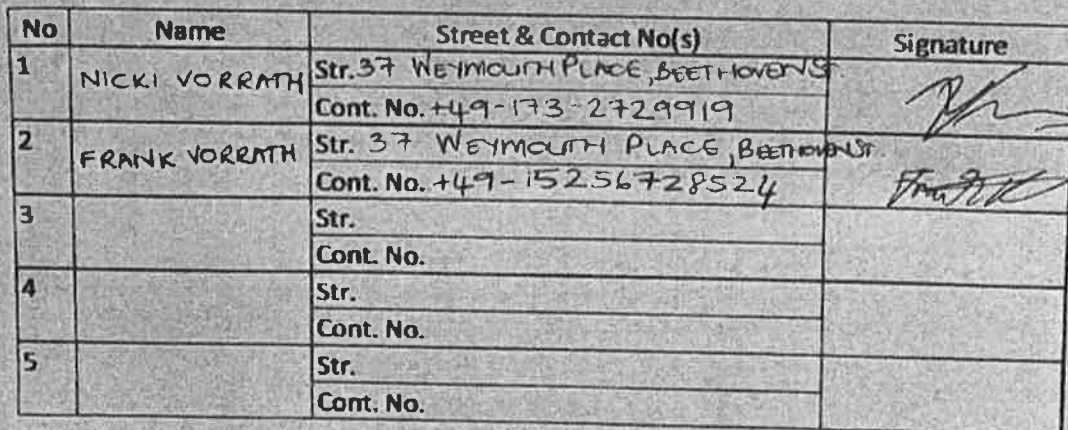 No Name Street & Contact No(s) Signature
1 NICKI VORRATH Str. 37 WEYMOUTH PLACE, BEETHOVEN ST.
Cont. No. +49-173-2729919
2 FRANK VORRATH Str. 37 WEYMOUTH PLACE, BEETHOVEN ST.
Cont. No. +49-15256728524
3 Str.
Cont. No.
4 Str.
Cont. No.
5 Str.
Cont. No.